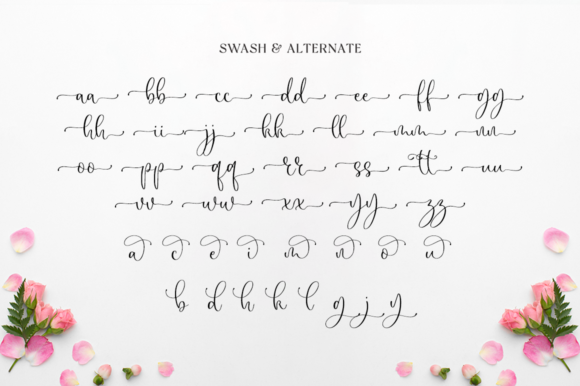 SWASH & ALTERNATE
aa bb cc dd ee ff gg
hh ii jj kk ll mm nn
oo pp qq rr ss tt uu
vv ww xx yy zz
a c e i m n o u
b d h k l g j y